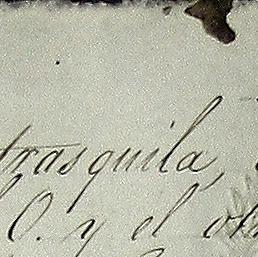 trasquila,
O. y el